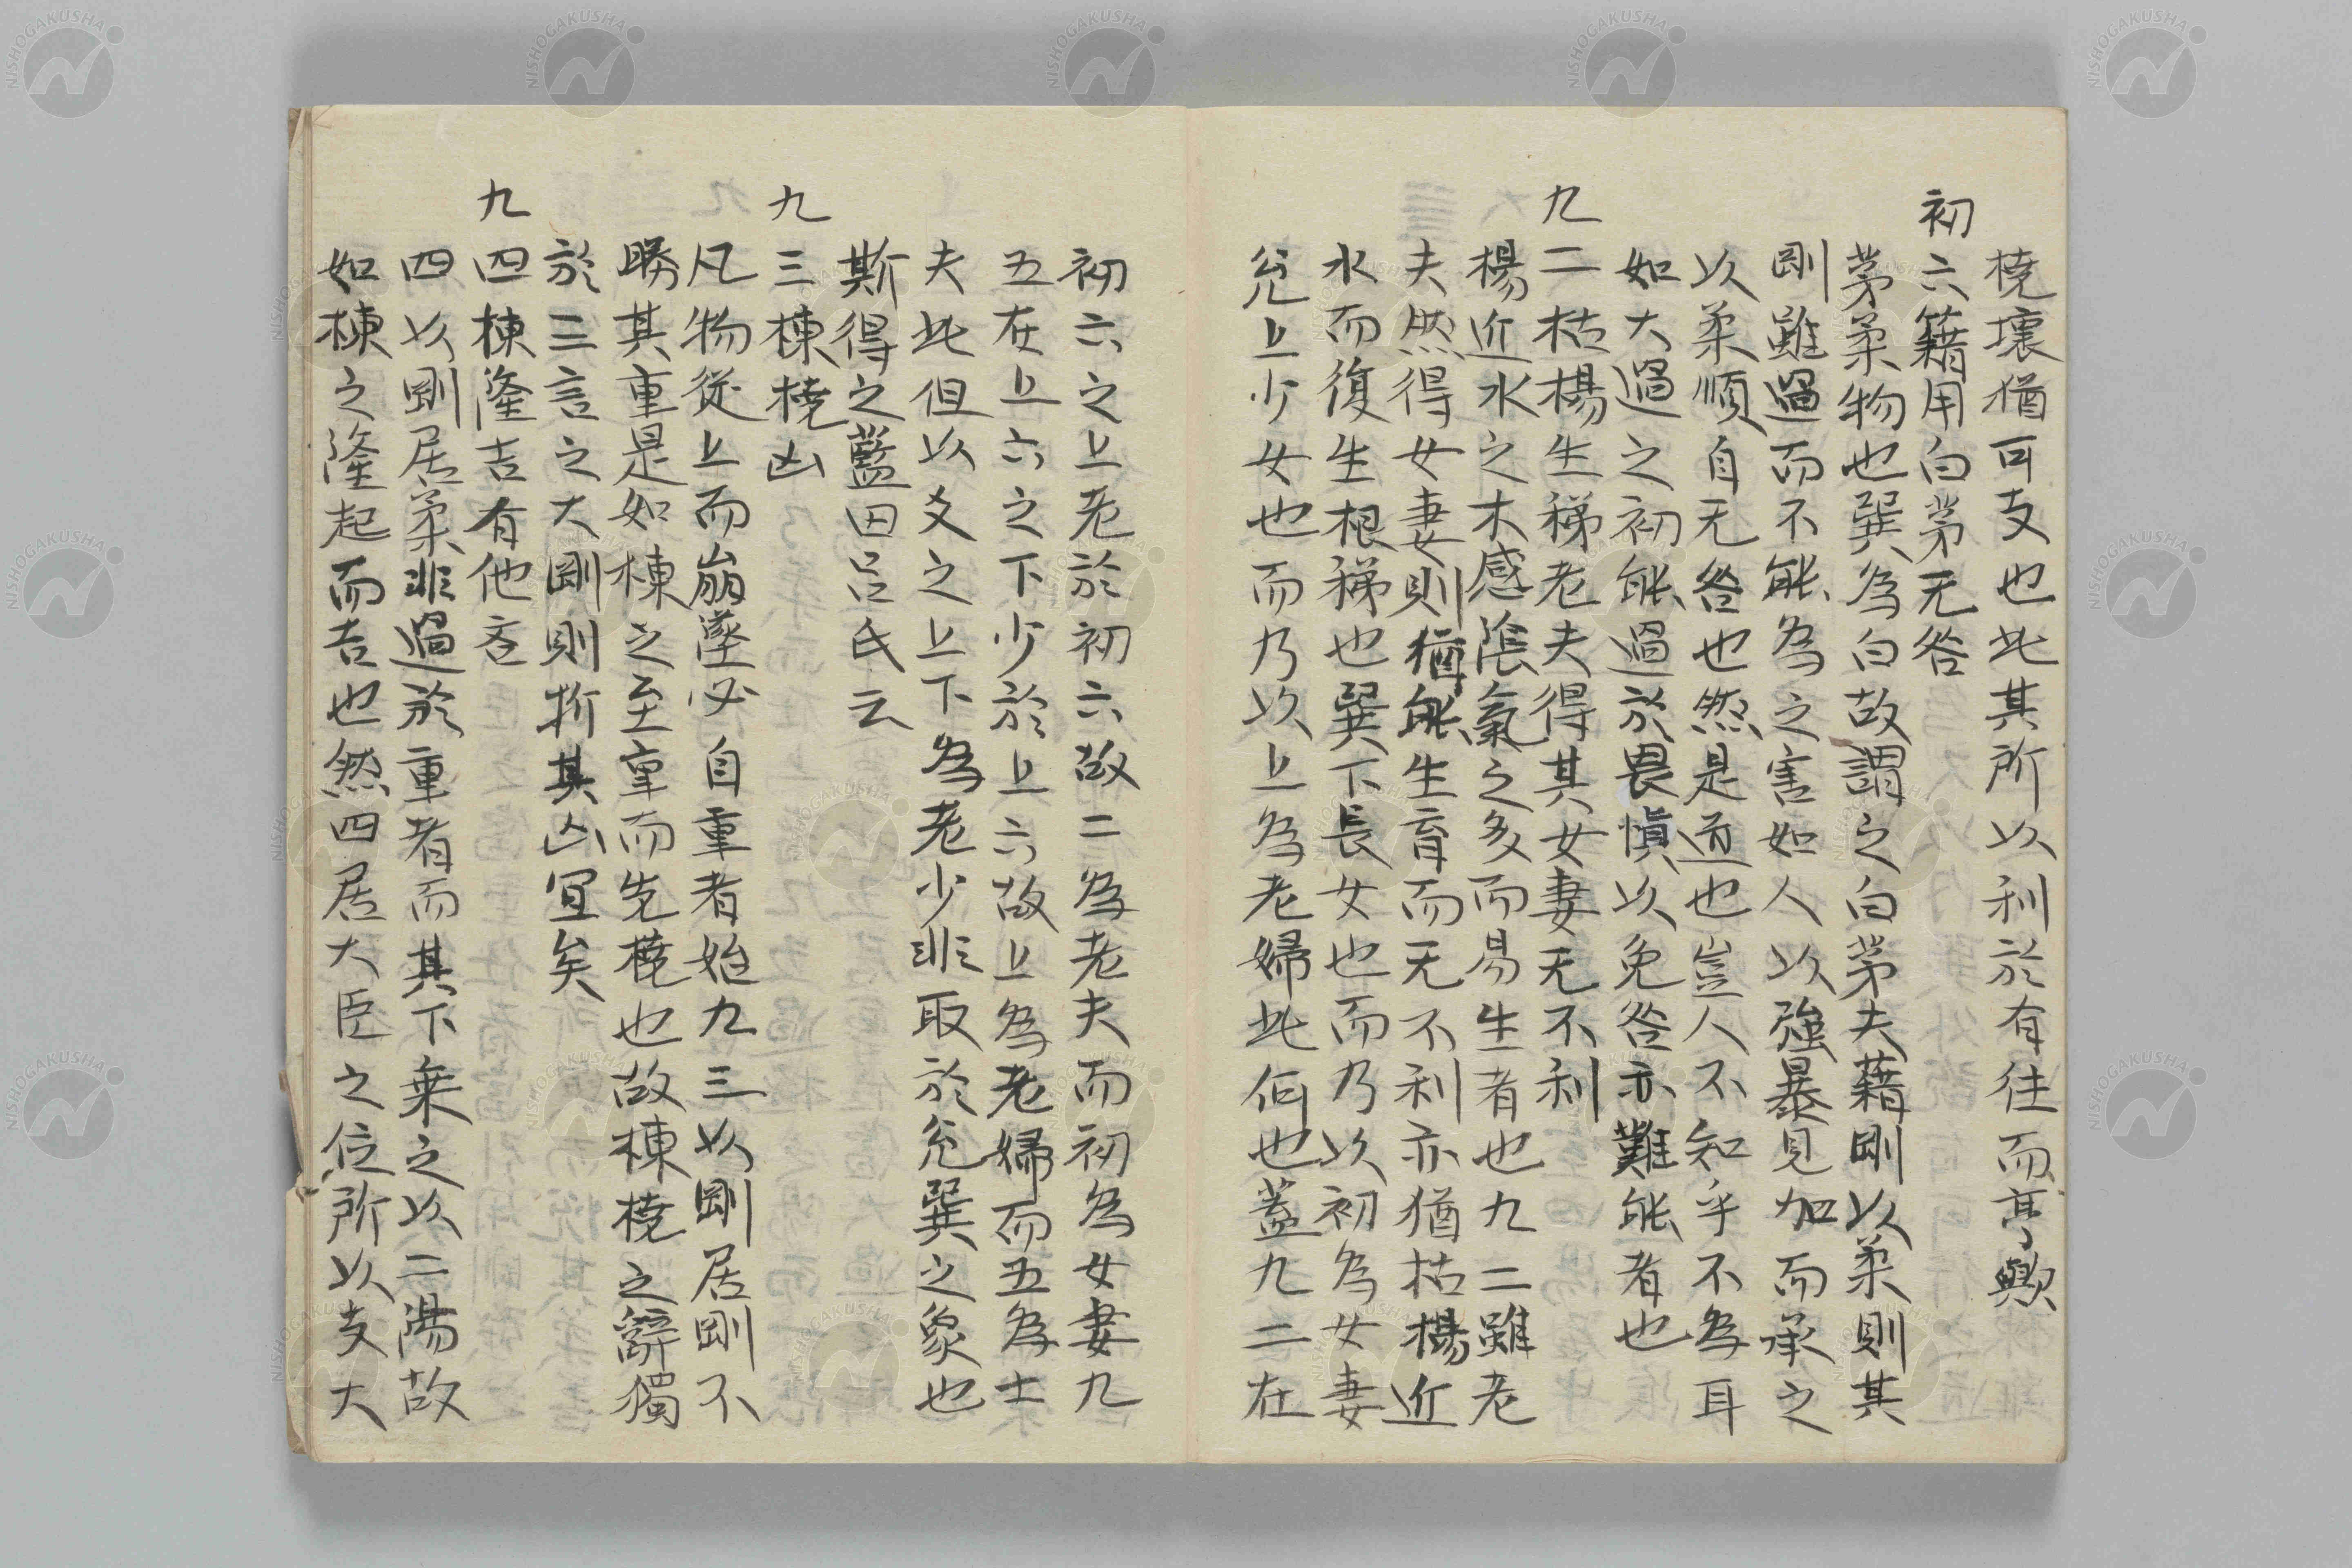 橈壞猶可支也此其所以利於有往而亨歟
初六籍用白茅无咎
茅柔物也巽為白故謂之白茅夫藉剛以柔則其
剛雖過而不能為之害如人以強暴見加而承之
以柔順自无咎也然是道也豈人不知乎不為耳
如大過之初能過於畏慎以免咎亦難能者也
九二枯楊生稊老夫得其女妻无不利
楊近水之木感陰氣之多而易生者也九二雖老
夫然得女妻則猶能生育而无不利亦猶枯楊近
水而復生根稊也巽下長女也而乃以初為女妻
兌上少女也而乃以上為老婦此何也蓋九二在
初六之上老於初六故二為老夫而初為女妻九
五在上六之下少於上六故上為老婦而五為士
夫此但以爻之上下為老少非取於兌巽之象也
斯得之藍田呂氏云
九三棟橈凶
凡物從上而崩墜必自重者始九三以剛居剛不
勝其重是如棟之至重而先橈也故棟橈之辭獨
於三言之大剛則折其凶宜矣
九四棟隆吉有他吝
四以剛居柔非過於重者而其下乗之以二陽故
如棟之隆起而吉也然四居大臣之位所以支大
NISHOGAKUSHA
NISHOGAKUSHA
NISHOGAKUSHA
NISHOGAKUSHA
NISHOGAKUSHA
NISHOGAKUSHA
NISHOGAKUSHA
NISHOGAKUSHA
NISHOGAKUSHA